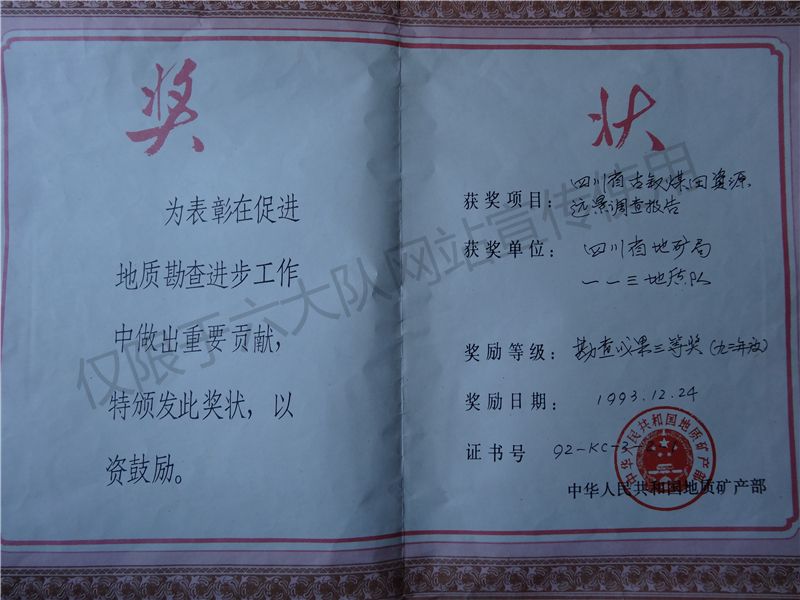 奖
为表彰在促进
地质勘查进步工作
中做出重要贡献，
特颁发此奖状，以
资鼓励。
状
获奖项目：四川省古叙煤田资源
远景调查报告
获奖单位：四川省地矿局
一一三地质队
奖励等级：勘查成果三等奖（九二年度）
奖励日期：1993.12.24
证书号 92-KC-3-
中华人民共和国地质矿产部
中华人民共和国地质矿产部
仅限于六大队网站宣传使用